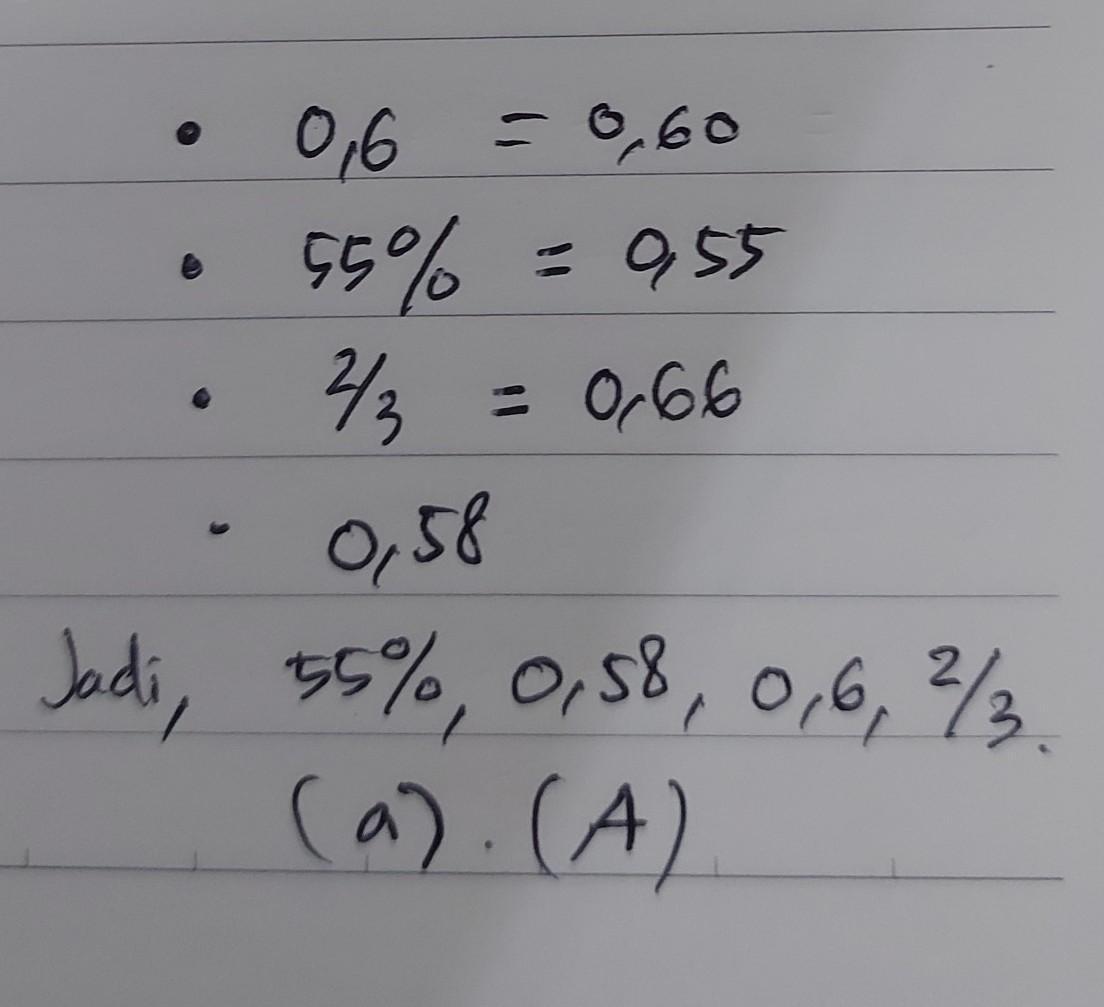 • 0,6 = 0,60
• 55% = 0,55
• 2/3 = 0,66
- 0,58
Jadi, 55%, 0,58, 0,6, 2/3.
(a). (A)